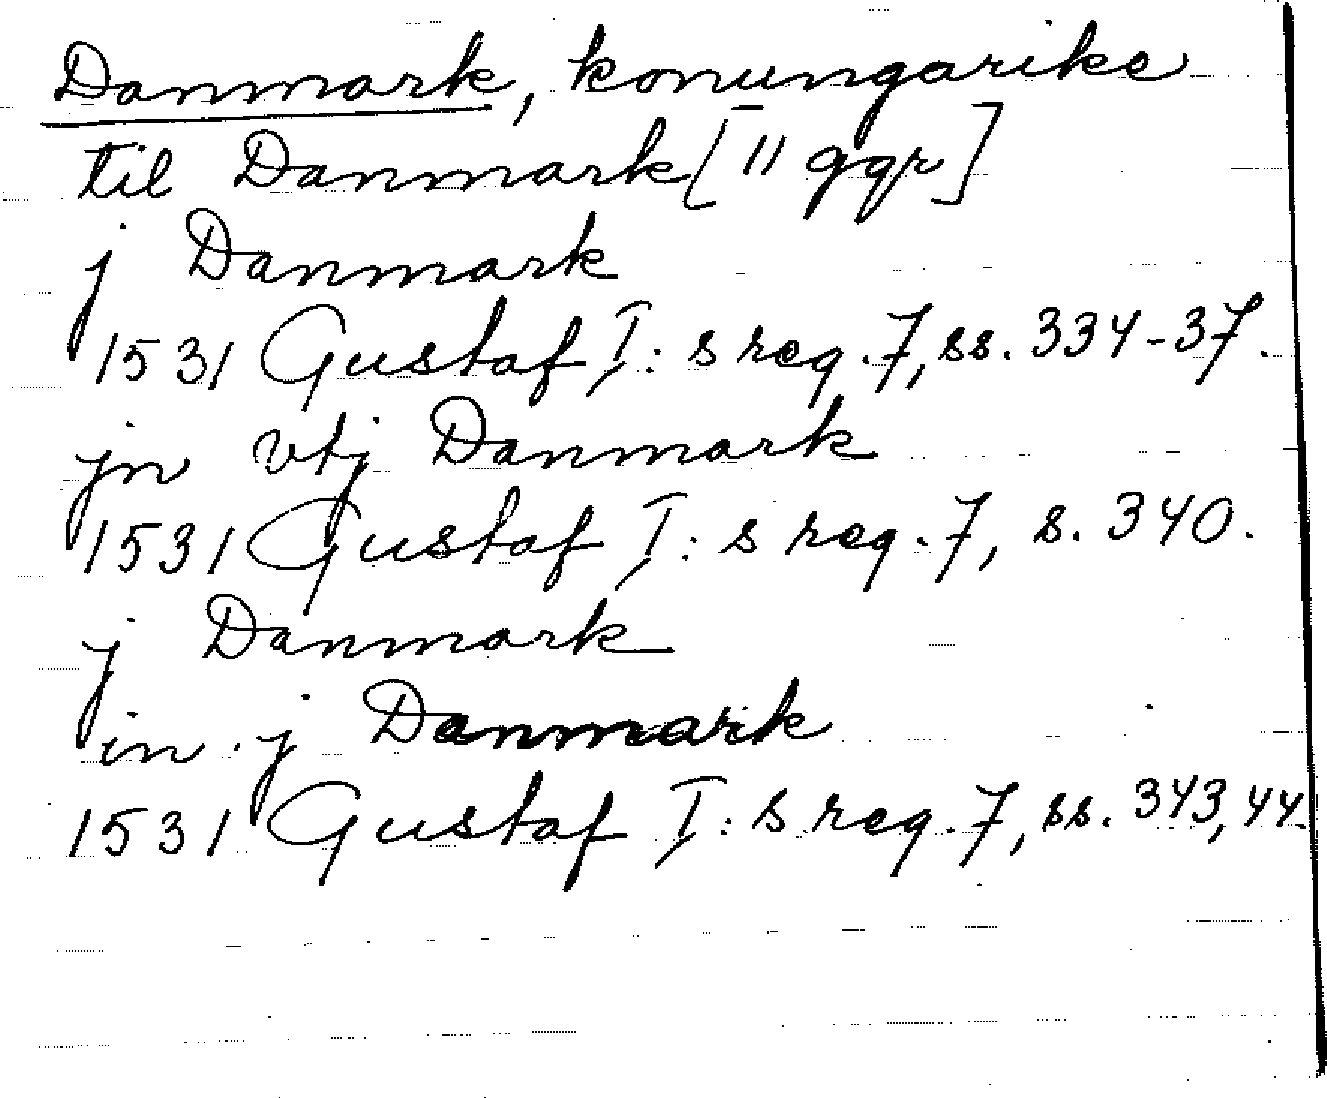 Danmark, konungarike
til Danmark [11 ggr]
j Danmark
1531 Gustaf I:s reg. 7, ss. 334-37.
jn vtj Danmark
1531 Gustaf I:s reg. 7, s. 340.
j Danmark
in j Danmark
1531 Gustaf I:s reg. 7, ss. 343, 44.